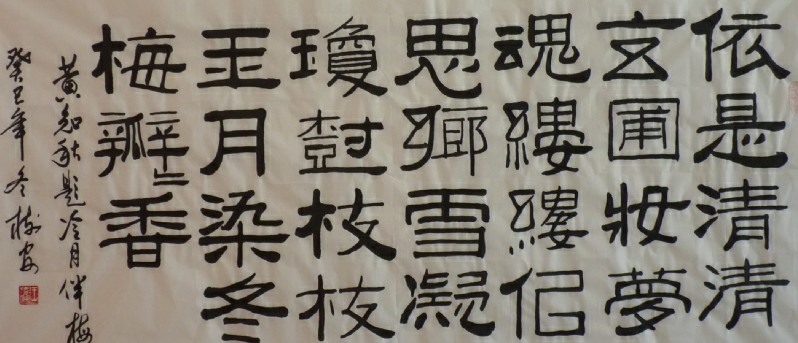 依是清清
玄圃妝夢
魂縷縷侣
思鄉雪凝
瓊樹枝枝
玉月染冬
梅瓣々香
黄知秋题冷月伴梅
癸巳年冬树